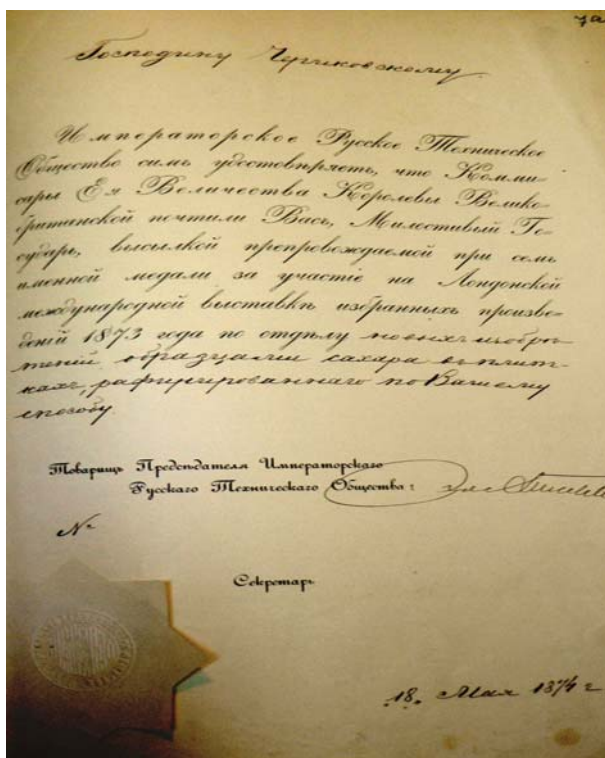 7а
Господину Черниковскому.
Императорское Русское Техническое
Общество симъ удостовѣряетъ, что Комми-
сары Ея Величества Королевы Велико-
британской почтили Васъ, Милостивый Го-
сударь, высылкой препровождаемой при семъ
именной медали за участіе на Лондонской
международной выставкѣ избранныхъ произве-
деній 1873 года по отдѣлу новыхъ изобрѣ-
теній образцами сахара въ плит-
кахъ, рафинированнаго по Вашему
способу.
Товарищъ Предсѣдателя Императорскаго
Русскаго Техническаго Общества:
№
Секретарь
18. Мая 1874 г